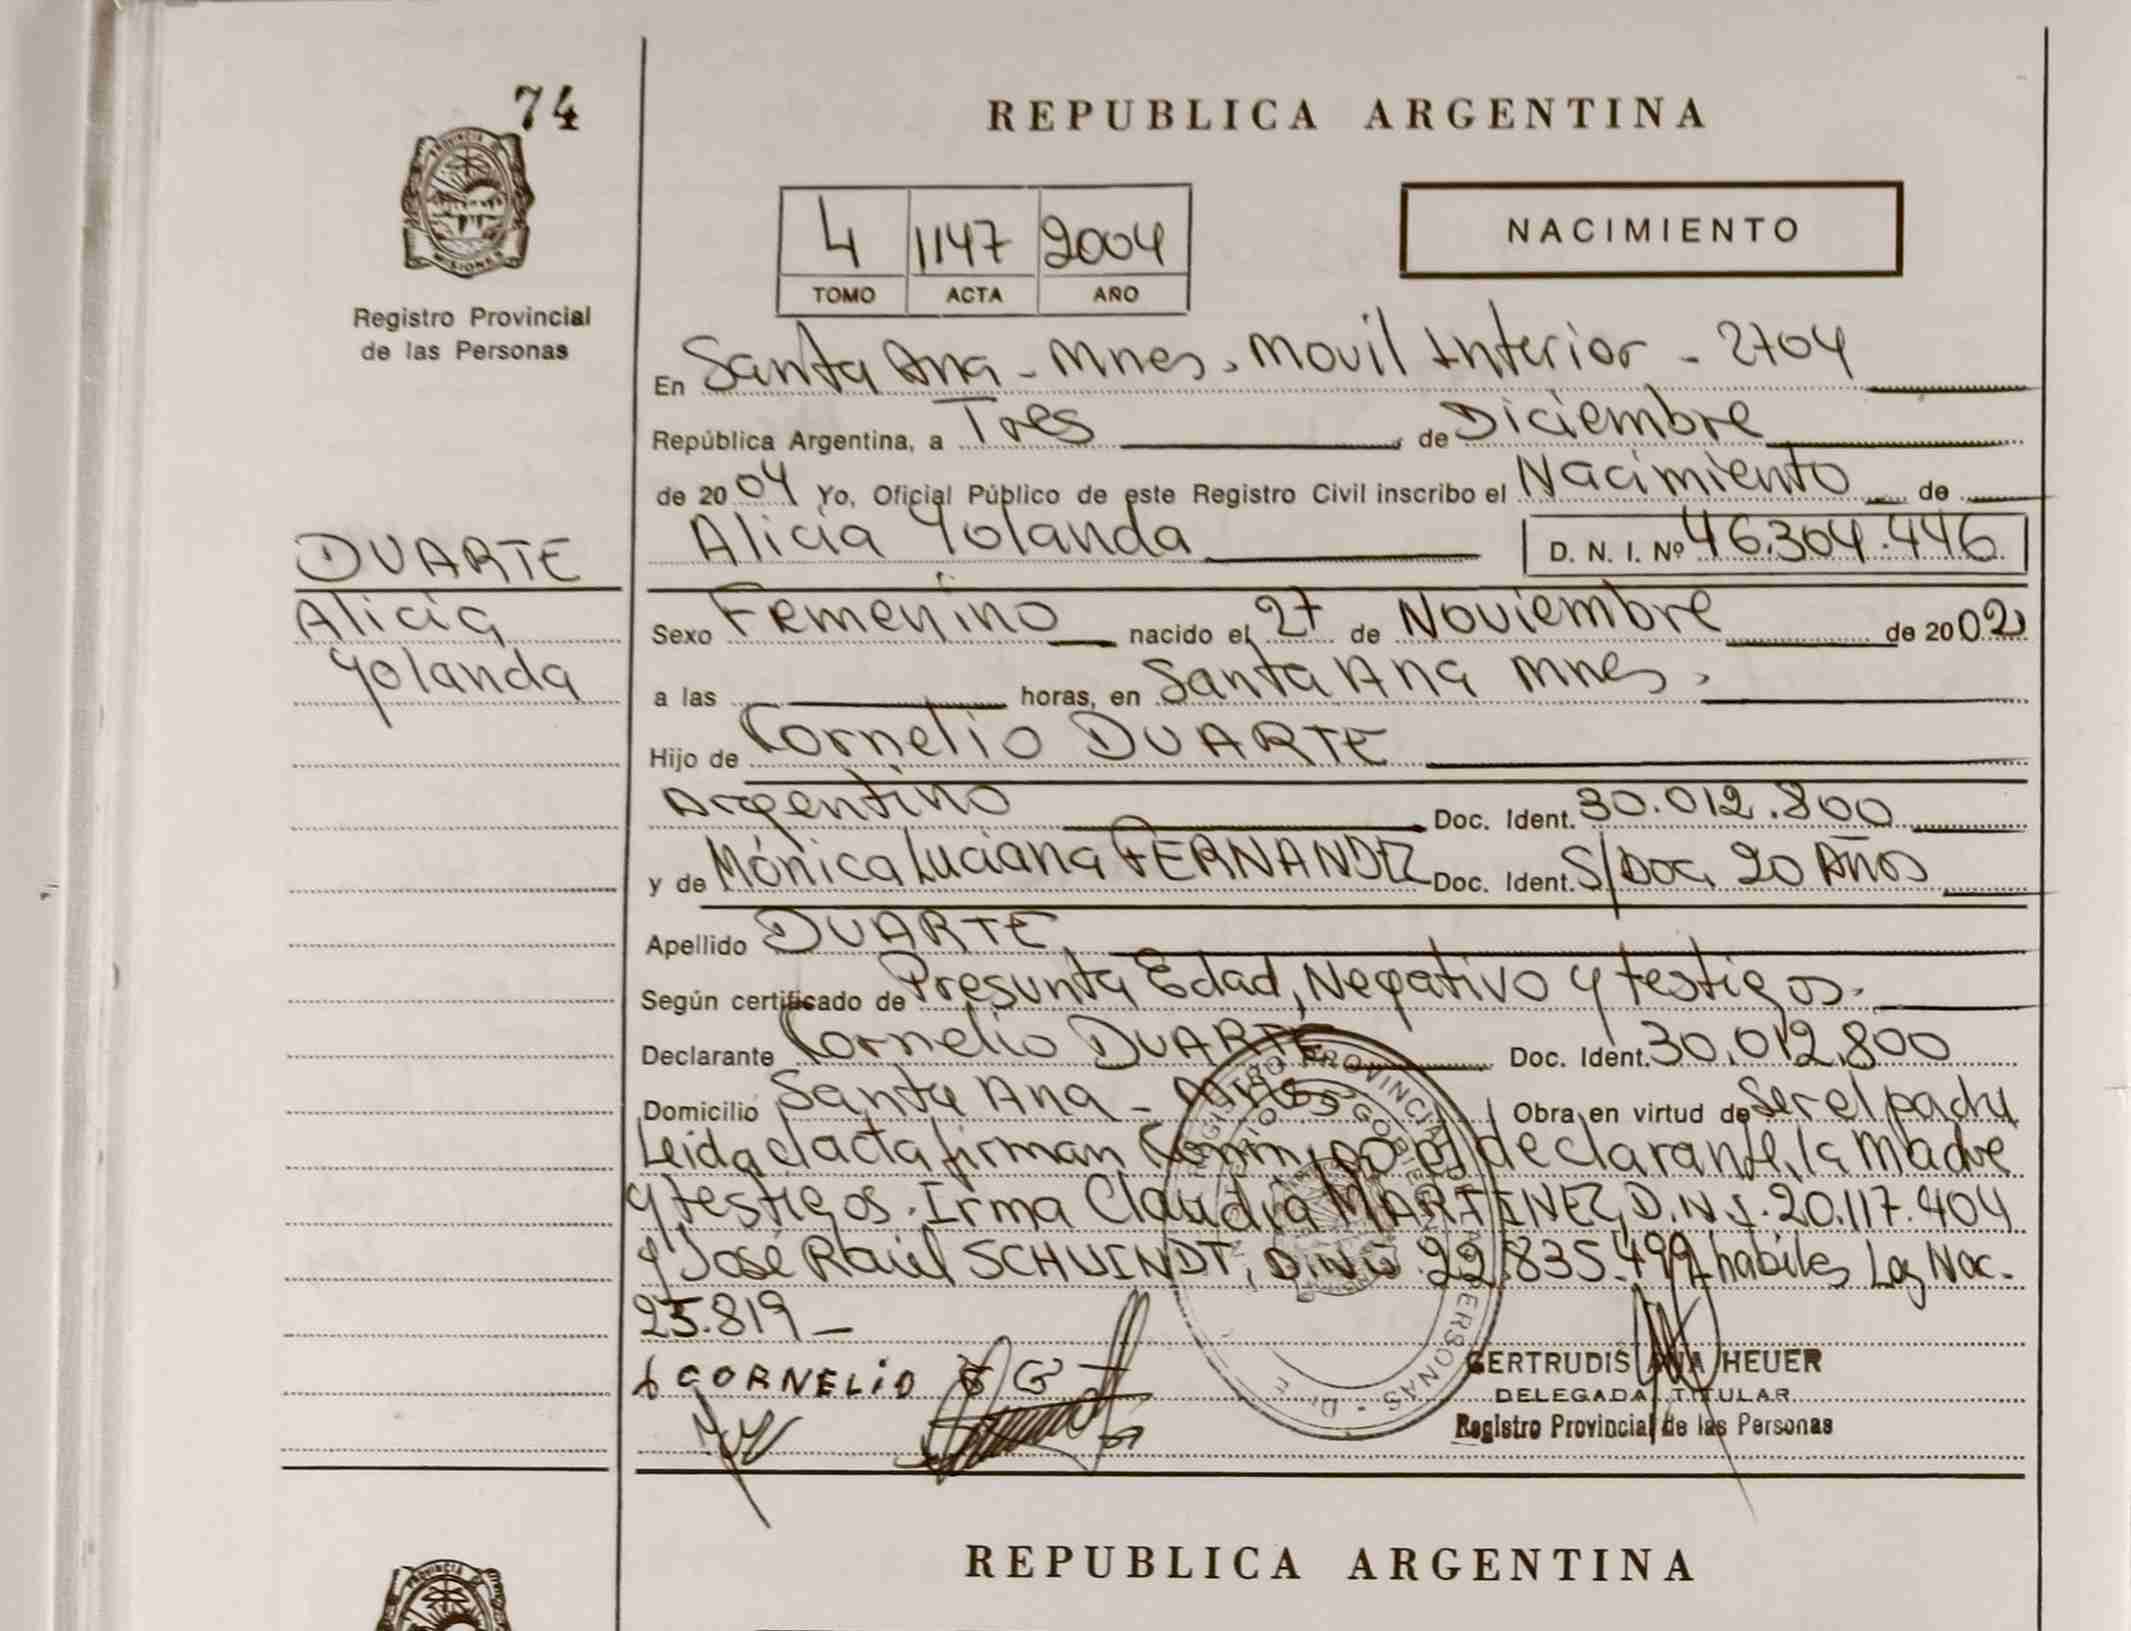 74
PROVINCIA DE
MISIONES
Registro Provincial
de las Personas
REPUBLICA ARGENTINA
4 1147 2004
TOMO ACTA AÑO
NACIMIENTO
En Santa Ana - Mnes. Movil Interior - 2704
República Argentina, a Tres de Diciembre
de 2004 Yo, Oficial Público de este Registro Civil inscribo el Nacimiento de
Alicia Yolanda D. N. I. Nº 46.304.446
DUARTE
Alicia
Yolanda
Sexo Femenino nacido el 27 de Noviembre de 2002
a las horas, en Santa Ana Mnes.
Hijo de Cornelio DUARTE
Argentino Doc. Ident. 30.012.800
y de Mónica Luciana FERNANDEZ Doc. Ident. S/Doc. 20 Años
Apellido DUARTE
Según certificado de Presunta Edad, Negativo y testigos.
Declarante Cornelio DUARTE Doc. Ident. 30.012.800
Domicilio Santa Ana - Mnes Obra en virtud de Ser el padre
Leida el acta firman Conmigo el declarante, la Madre
y testigos. Irma Claudia MARTINEZ, D.N.I. 20.117.404
y José Raúl SCHUINDT, D.N.I. 22.835.499 habiles Ley Nac.
25.819 -
CORNELIO G
GERTRUDIS ANA HEUER
DELEGADA TITULAR
Registro Provincial de las Personas
REPUBLICA ARGENTINA
PROVINCIA